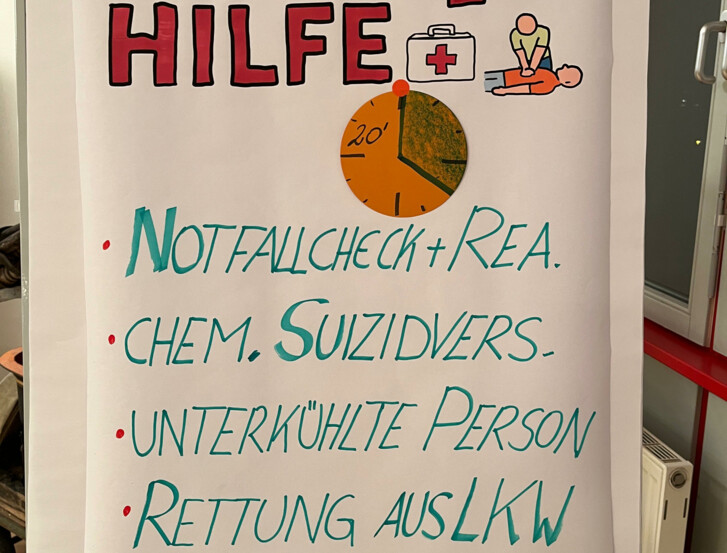 HILFE
20'
• NOTFALLCHECK + REA.
• CHEM. SUIZIDVERS.
• UNTERKÜHLTE PERSON
• RETTUNG AUS LKW